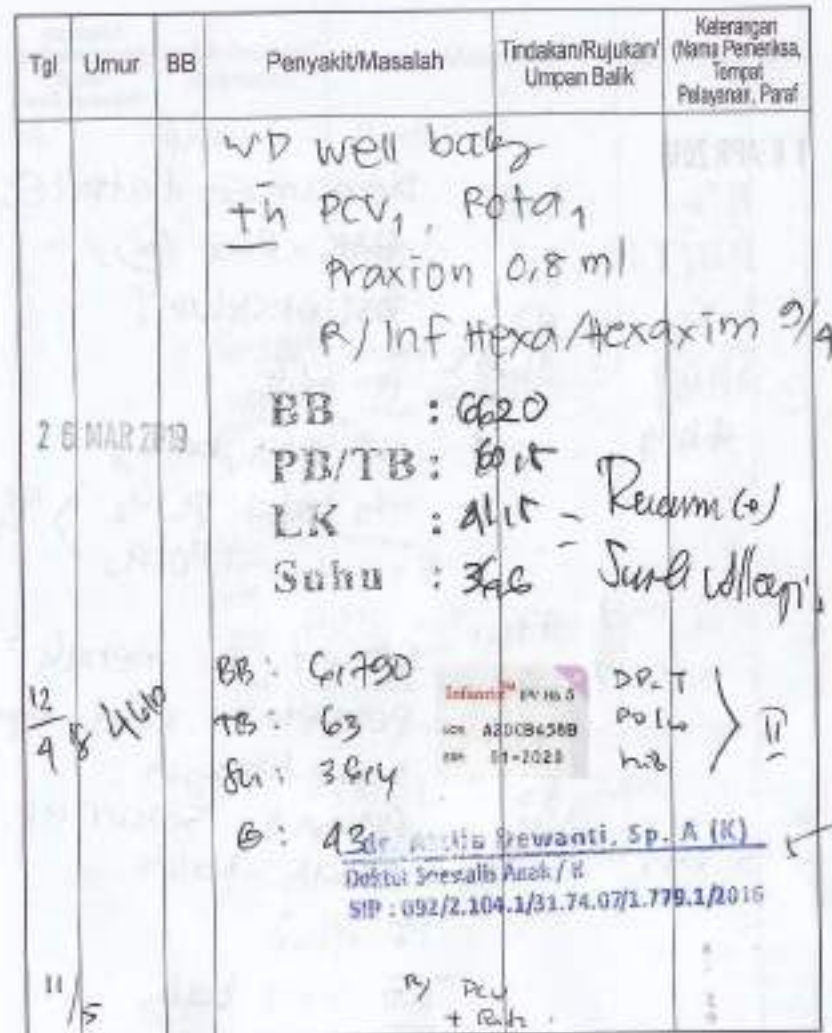 Tgl Umur BB Penyakit/Masalah Tindakan/Rujukan/ Umpan Balik Keterangan (Nama Pemeriksa, Tempat Pelayanan, Paraf
WD well baby
th PCV1, Rota1
Praxion 0,8 ml
R/ Inf Hexa/Hexaxim 9/4
26 MAR 2019
BB : 6620
PB/TB : 60,5
LK : 41,5
Suhu : 36,6
12/4
BB : 6,790
TB : 63
Su : 36,4
: 43
Infanrix™ IPV Hib
LOT A20CB458B
01-2020
DP-T
Polio
hib
II
dr. Attila Dewanti, Sp. A (K)
Dokter Spesialis Anak / K
SIP : 092/2.104.1/31.74.07/1.779.1/2016
11/5
R/ PCV
+ Rota